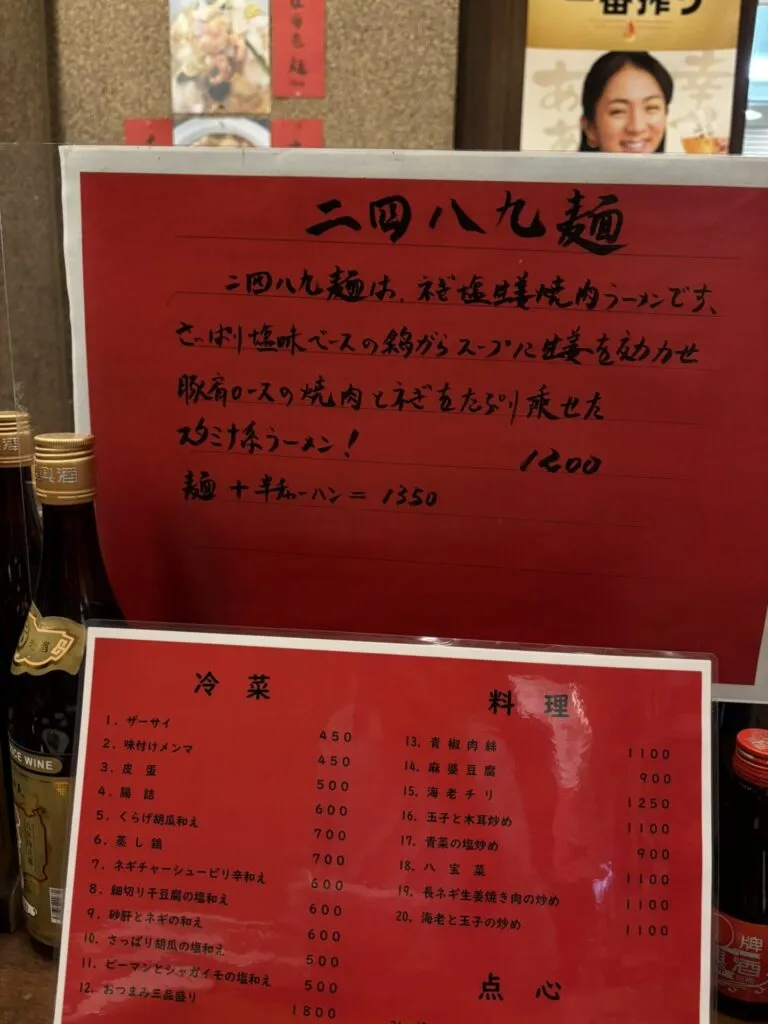 一番搾り
二四八九麺
二四八九麺は、ネギ塩生姜焼肉ラーメンです、
さっぱり塩味ベースの鶏がらスープに生姜を効かせ
豚肩ロースの焼肉とネギをたっぷり乗せた
スタミナ系ラーメン！
1200
麺 + 半チャーハン = 1350
冷菜
1. ザーサイ 450
2. 味付けメンマ 450
3. 皮蛋 500
4. 腸詰 600
5. くらげ胡瓜和え 700
6. 蒸し鶏 700
7. ネギチャーシューピリ辛和え 600
8. 細切り干豆腐の塩和え 600
9. 砂肝とネギの和え 600
10. さっぱり胡瓜の塩和え 500
11. ピーマンとジャガイモの塩和え 500
12. おつまみ三品盛り 1800
料理
13. 青椒肉絲 1100
14. 麻婆豆腐 900
15. 海老チリ 1250
16. 玉子と木耳炒め 1100
17. 青菜の塩炒め 900
18. 八宝菜 1100
19. 長ネギ生姜焼き肉の炒め 1100
20. 海老と玉子の炒め 1100
点心
WINE
牌
酒